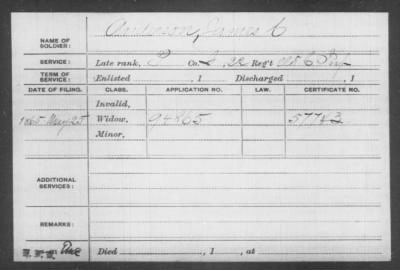 NAME OF SOLDIER: Anderson, James C
SERVICE: Late rank, P Co. 32 Reg't Inf
TERM OF SERVICE: Enlisted , 1 Discharged , 1
DATE OF FILING. CLASS. APPLICATION NO. LAW. CERTIFICATE NO.
Invalid,
1865 May 25 Widow, 94865 57783
Minor,
ADDITIONAL SERVICES:
REMARKS:
Died , 1 , at